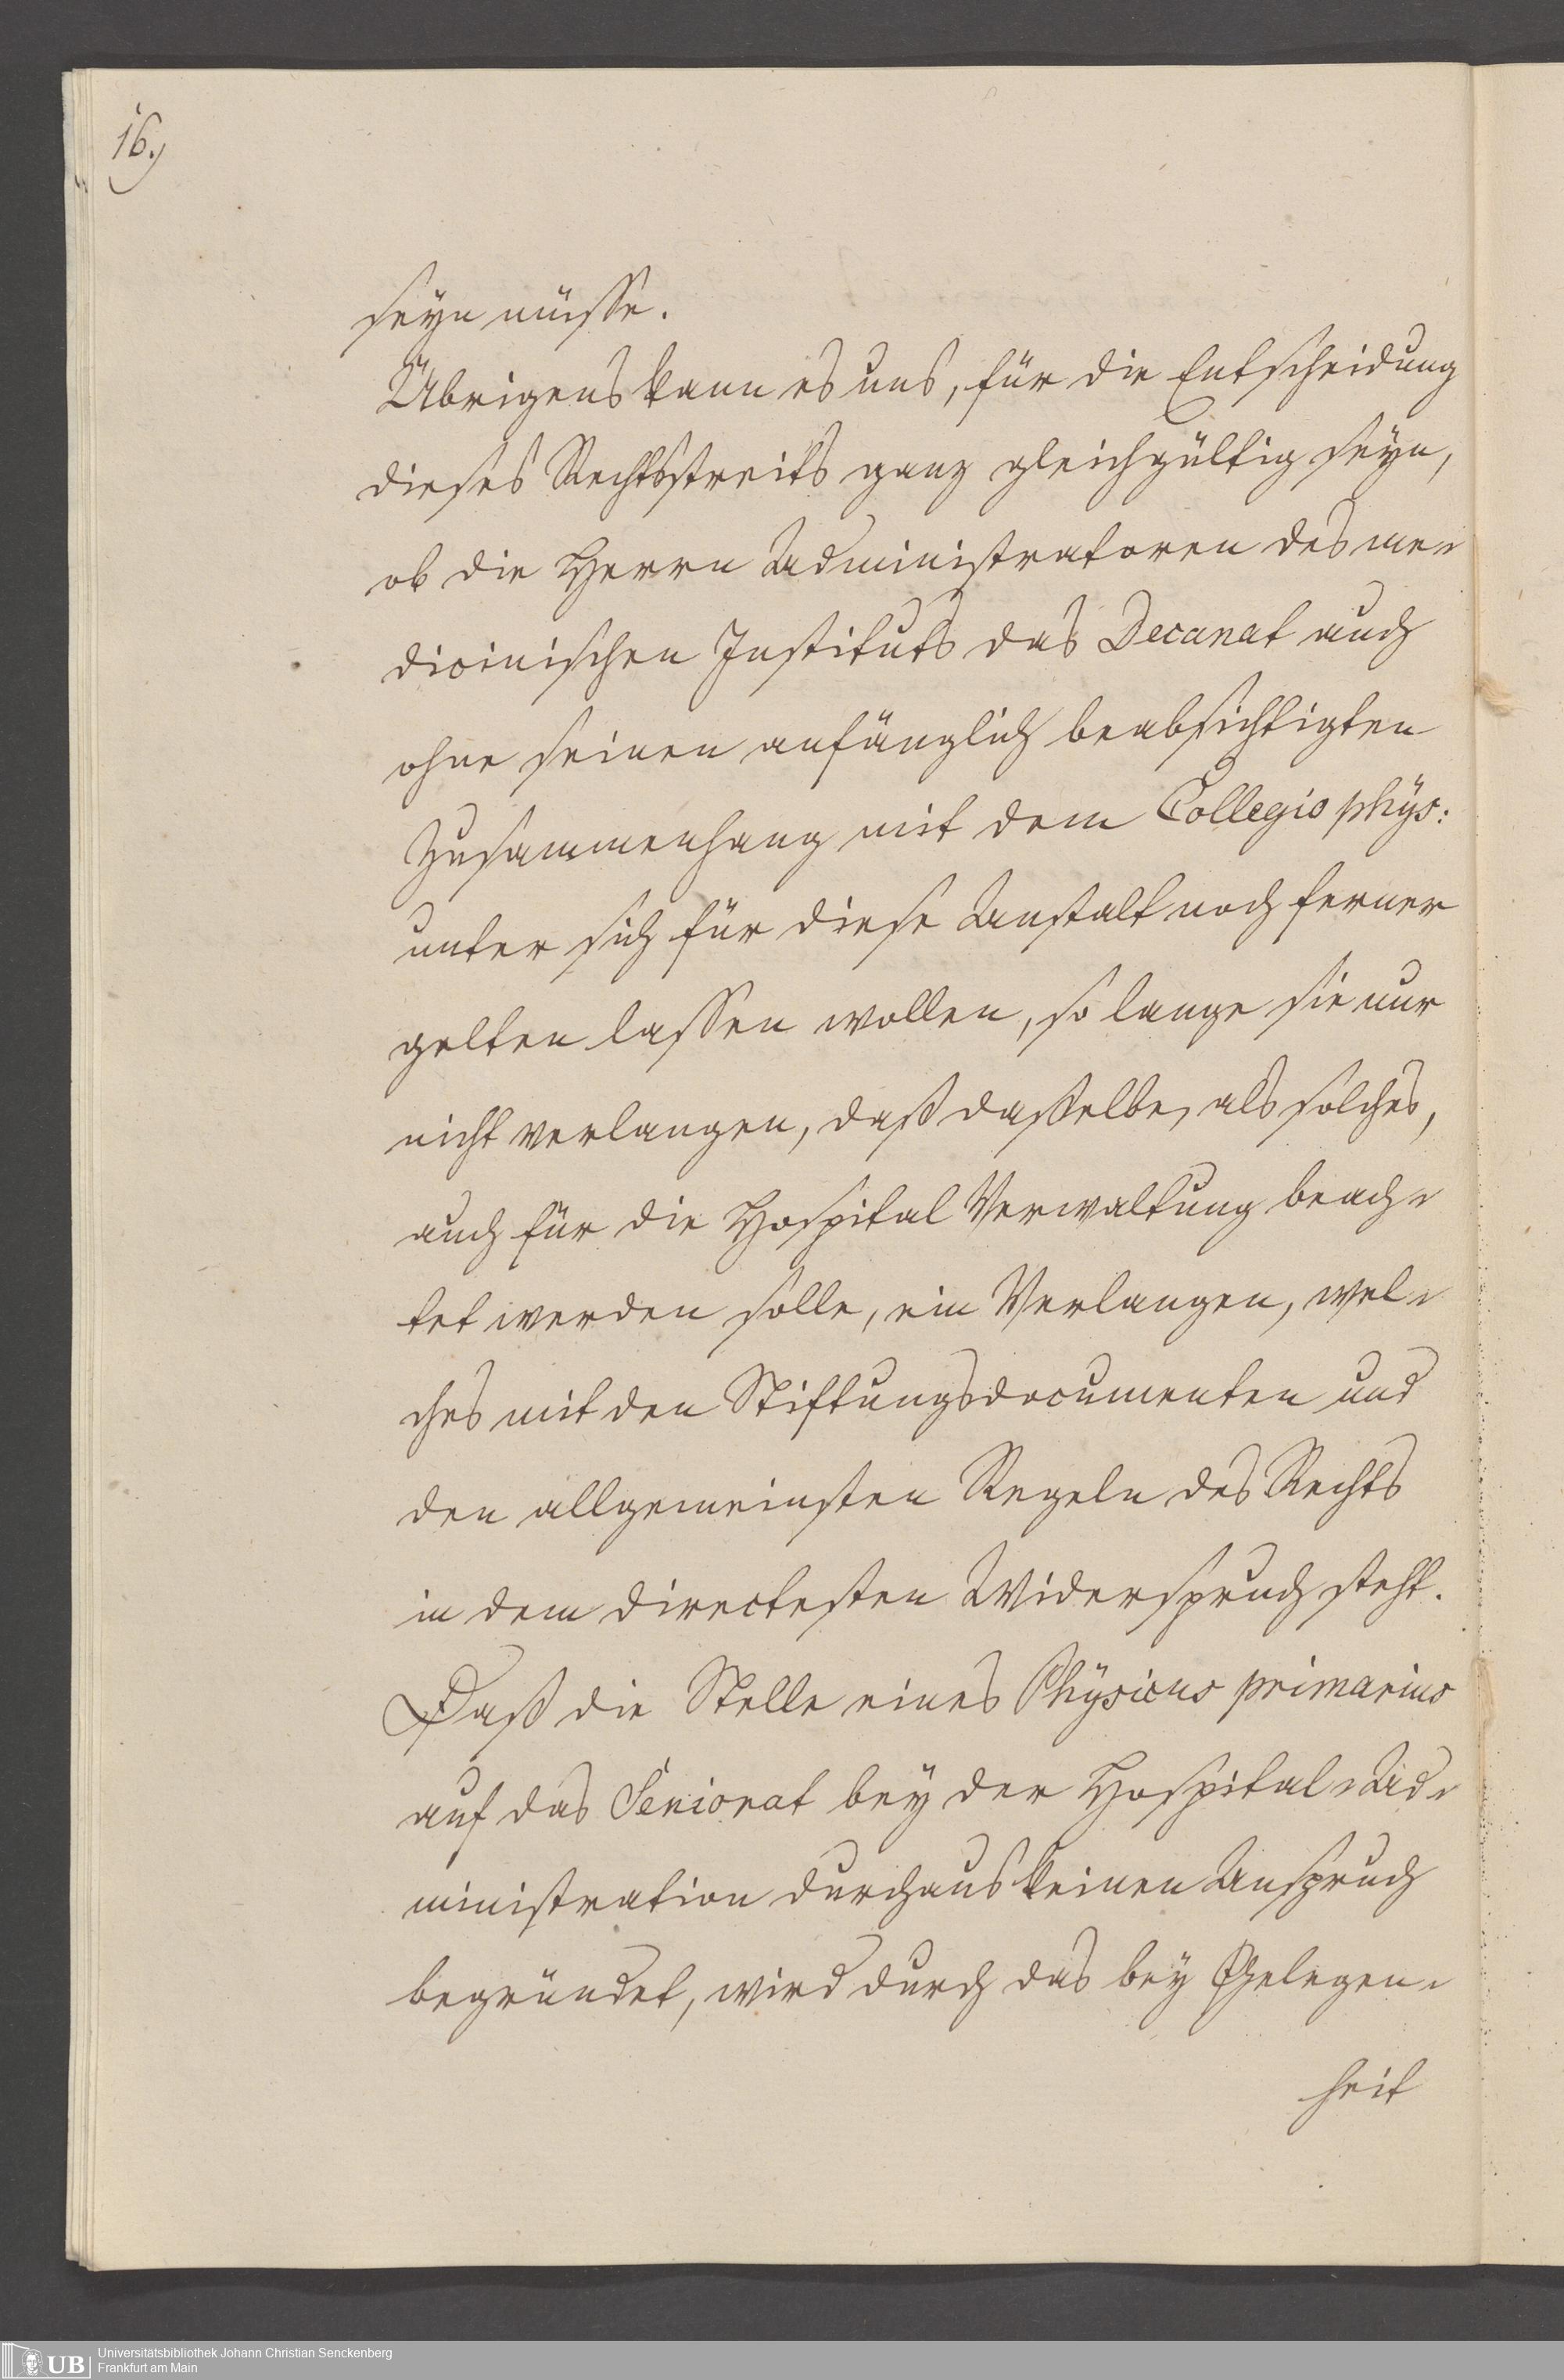 16.)
seyn müsse.
Übrigens kann es uns, für die Entscheidung
dieses Rechtsstreits ganz gleichgültig seyn,
ob die Herrn Administratoren des me-
dicinischen Instituts das Decanat auch
ohne seinen anfänglich beabsichtigten
Zusammenhang mit dem Collegio phys:
unter sich für diese Anstalt noch ferner
gelten lassen wollen, so lange sie nur
nicht verlangen, daß dasselbe, als solches,
auch für die Hospital Verwaltung beach-
tet werden solle, ein Verlangen, wel-
ches mit den Stiftungsdocumenten und
den allgemeinsten Regeln des Rechts
in dem directesten Widerspruch steht.
Daß die Stelle eines Physicus primarius
auf das Seniorat bey der Hospital-Ad-
ministration durchaus keinen Anspruch
begründet, wird durch das bey Gelegen-
heit
UB
Universitätsbibliothek Johann Christian Senckenberg
Frankfurt am Main